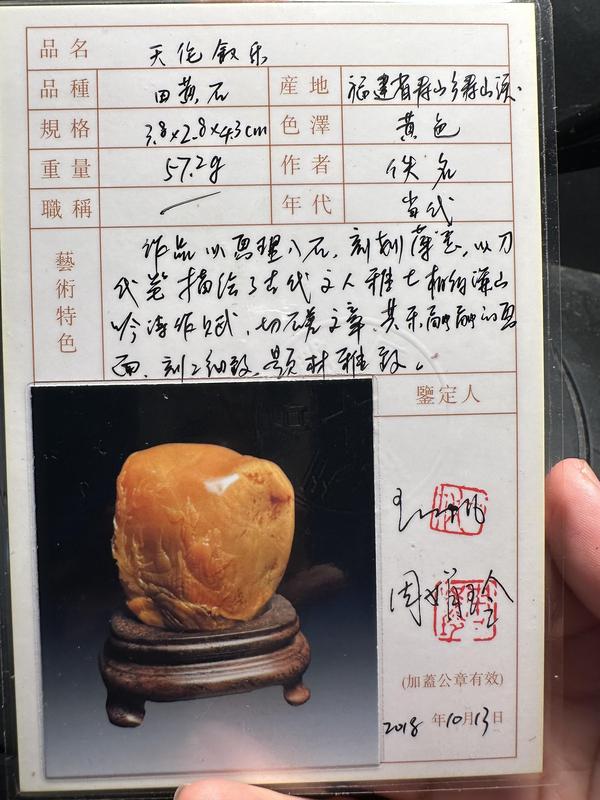 品名 天伦叙乐
品種 田黄石 産地 福建省寿山乡寿山溪
規格 3.8×2.8×4.3cm 色澤 黄色
重量 57.2g 作者 佚名
職稱 年代 当代
藝術特色
作品以画理入石，刻制薄意，以刀
代笔描绘了古代文人雅士相约深山
吟诗作赋，切磋文章，其乐融融的画
面，刻工细致，题材雅致。
鑒定人
(加蓋公章有效)
2018年10月13日